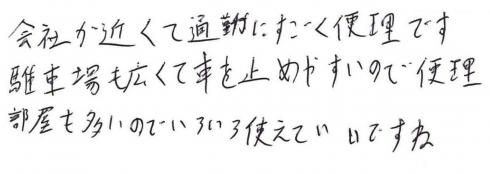 会社が近くて通勤にすごく便理です
駐車場も広くて車を止めやすいので便理
部屋も多いのでいろいろ使えていいですね